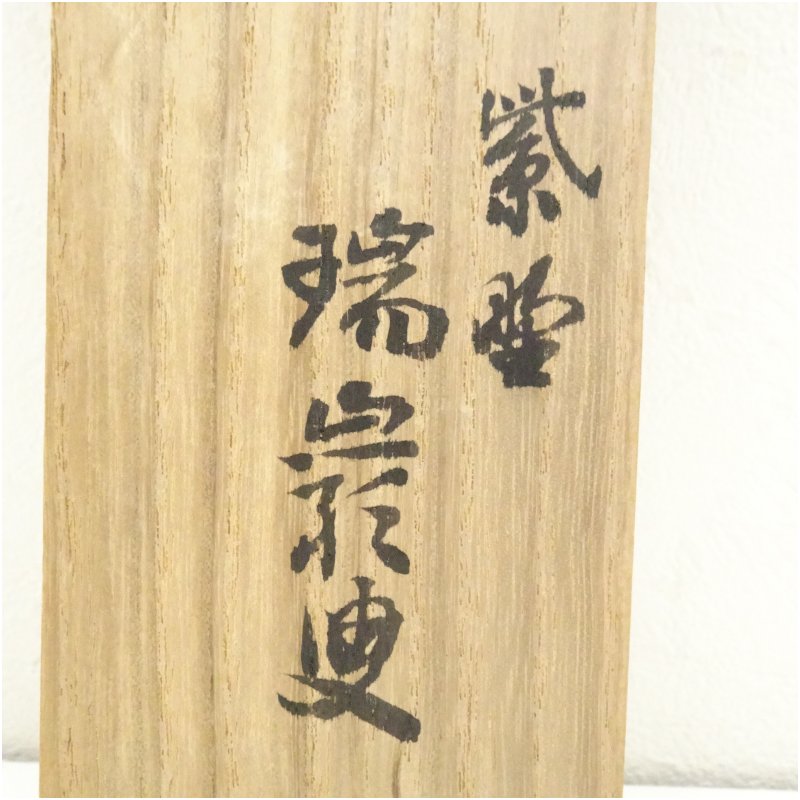 紫野
瑞巌叟